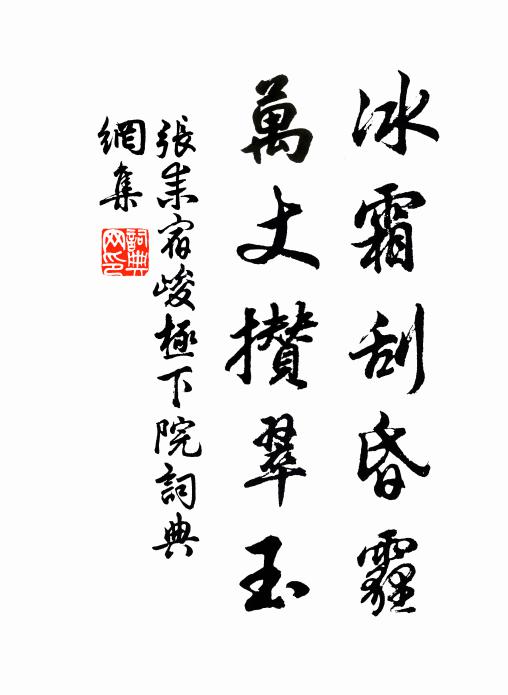 冰霜刮昏霾
萬丈攢翠玉
張耒宿峻極下院詞典
網集
詞典網印